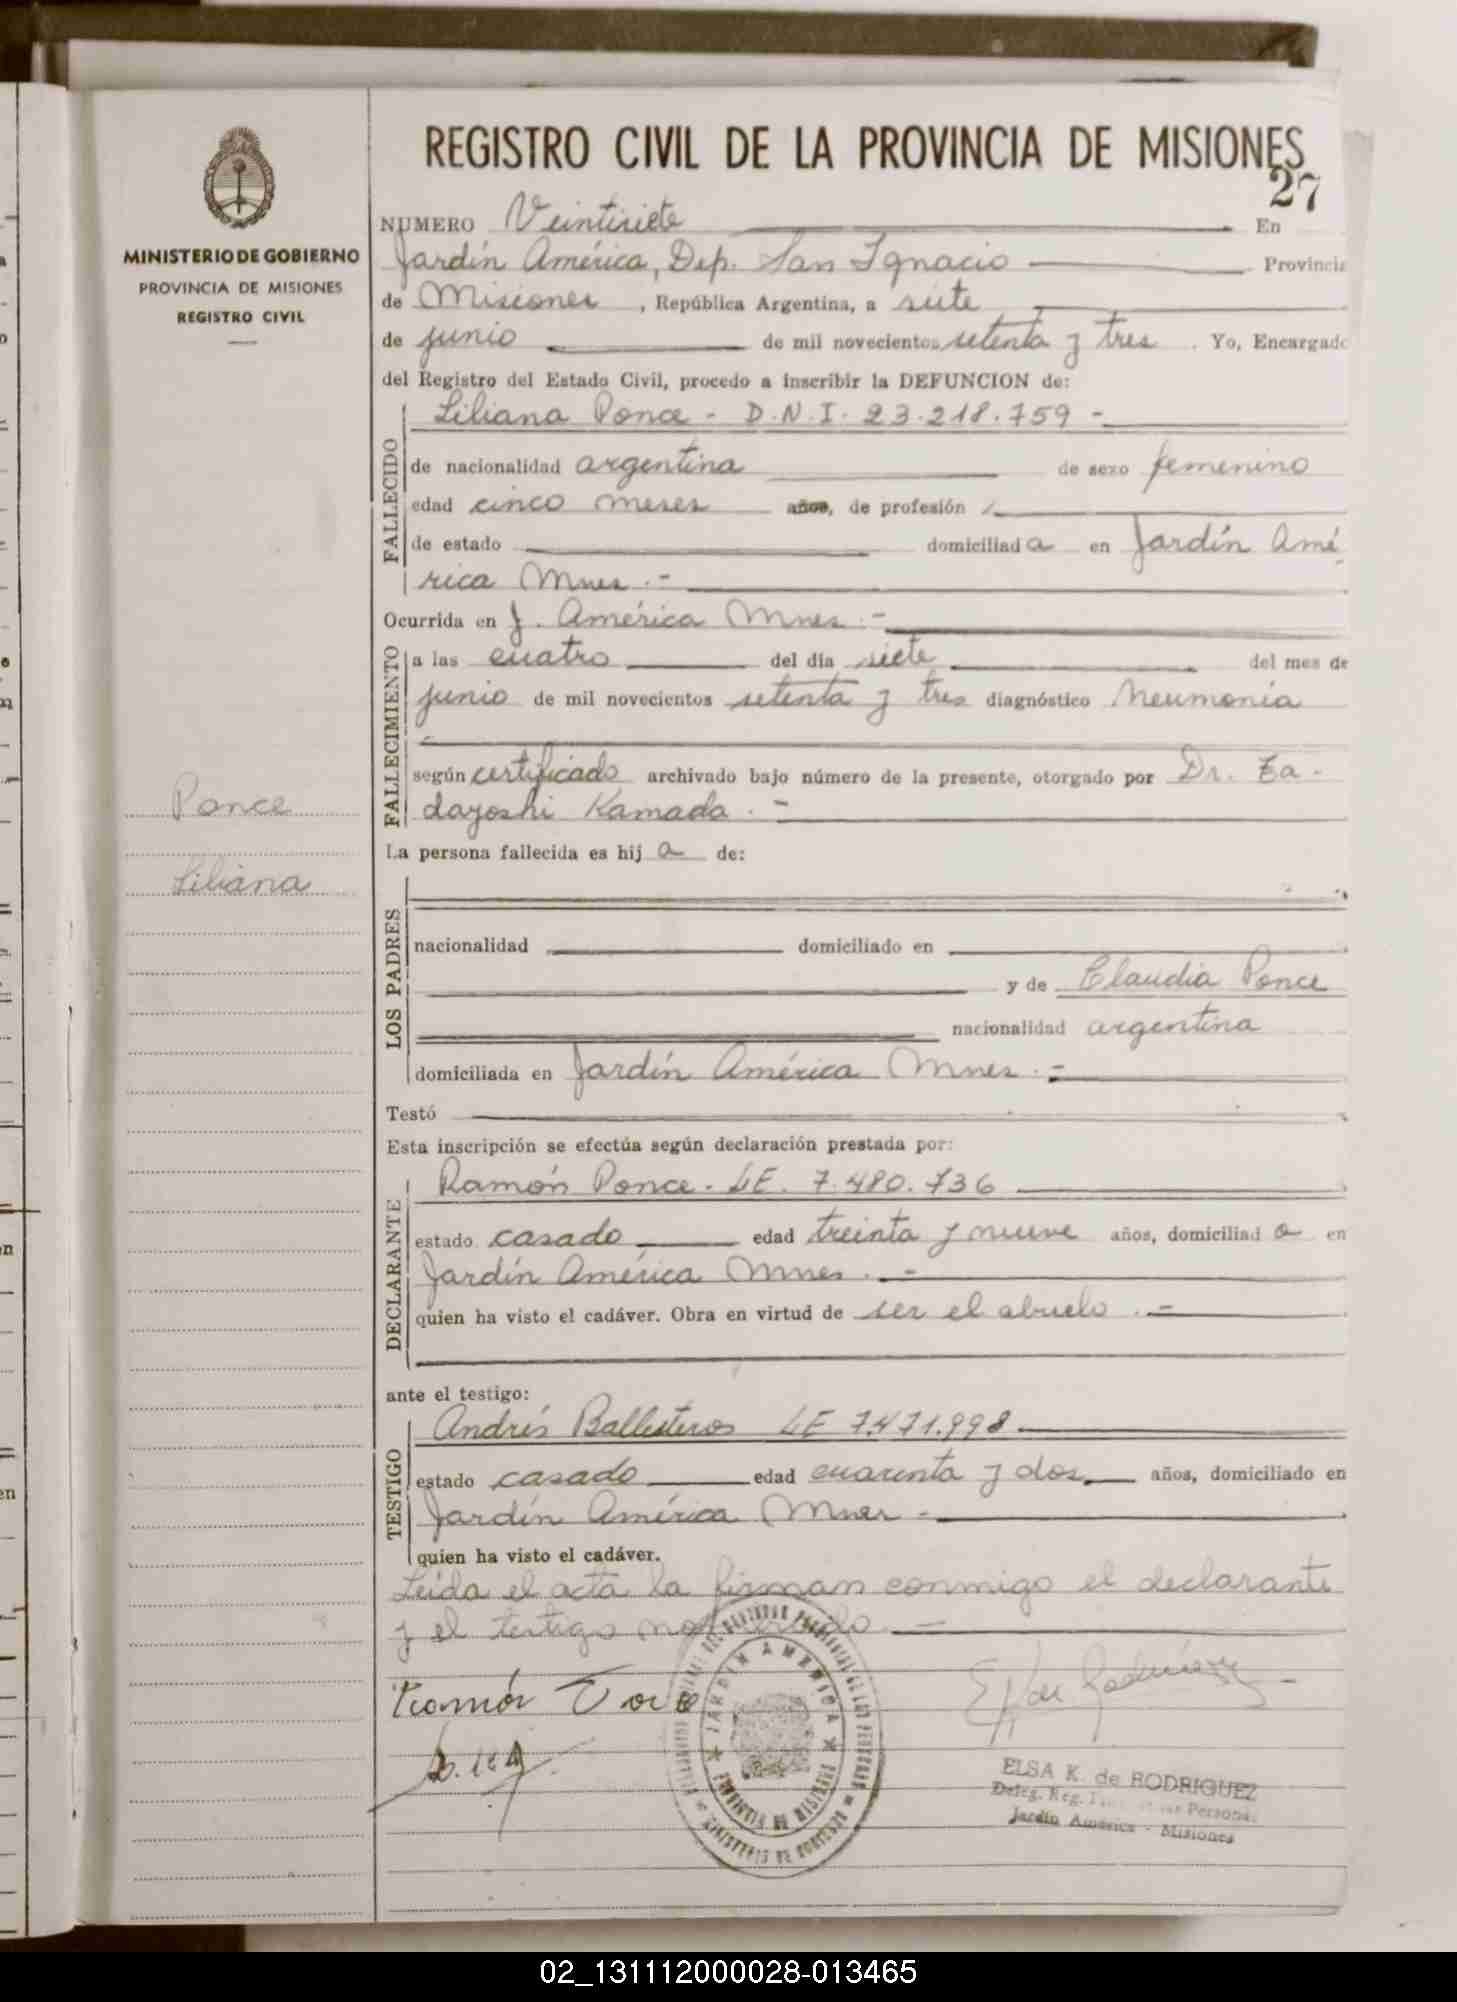 REGISTRO CIVIL DE LA PROVINCIA DE MISIONES
27
MINISTERIO DE GOBIERNO
PROVINCIA DE MISIONES
REGISTRO CIVIL
NUMERO Veintisiete En
Jardín América, Dep. San Ignacio Provincia
de Misiones, República Argentina, a siete
de junio de mil novecientos setenta y tres. Yo, Encargado
del Registro del Estado Civil, procedo a inscribir la DEFUNCION de:
FALLECIDO
Liliana Ponce - D.N.I. 23.218.759 -
de nacionalidad argentina de sexo femenino
edad cinco meses años, de profesión
de estado domiciliada en Jardín Amé
rica Mnes.-
Ocurrida en J. América Mnes.-
FALLECIMIENTO
a las cuatro del día siete del mes de
junio de mil novecientos setenta y tres diagnóstico Neumonía
según certificado archivado bajo número de la presente, otorgado por Dr. Ta-
dayoshi Kamada.-
Ponce
Liliana
La persona fallecida es hija de:
LOS PADRES
nacionalidad domiciliado en
y de Claudia Ponce
nacionalidad argentina
domiciliada en Jardín América Mnes.-
Testó
Esta inscripción se efectúa según declaración prestada por:
DECLARANTE
Ramón Ponce. LE. 7.480.736
estado casado edad treinta y nueve años, domiciliado en
Jardín América Mnes.-
quien ha visto el cadáver. Obra en virtud de ser el abuelo.-
ante el testigo:
TESTIGO
Andrés Ballesteros LE 7.471.998
estado casado edad cuarenta y dos años, domiciliado en
Jardín América Mnes -
quien ha visto el cadáver.
Leída el acta la firman conmigo el declarante
y el testigo
JARDIN AMERICA
PROVINCIA DE MISIONES
MINISTERIO DE GOBIERNO
ELSA K. de RODRIGUEZ
Deleg. Reg.
Jardín América - Misiones
02_131112000028-013465